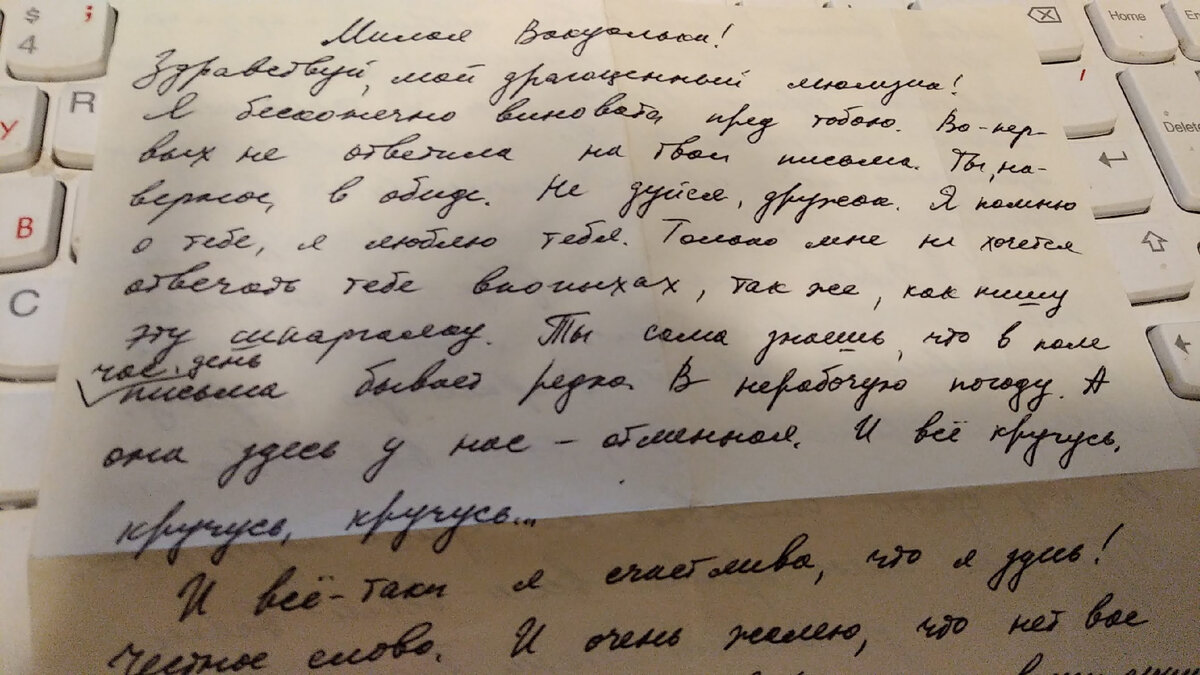 $ ;
4
R
У
В
С
Home
Delete
Милая
Здравствуй, мой драгоценный
Я бесконечно виновата пред тобою. Во-пер-
вых не ответила на твои письма. Ты, на-
верное, в обиде. Не дуйся, дружок. Я помню
о тебе, я люблю тебя. Только мне не хочется
отвечать тебе впопыхах, так же, как пишу
эту шпаргалку. Ты сама знаешь, что в поле
час, день
письма бывает редко. В нерабочую погоду. А
она здесь у нас - отменная. И всё кручусь,
кручусь, кручусь...
И всё-таки я счастлива, что я здесь!
Честное слово. И очень жалею, что нет вас